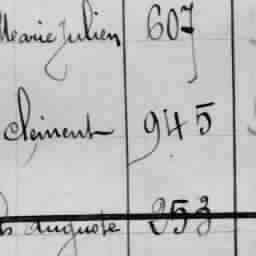 Marie Julien 607
Clément 945
auguste 253